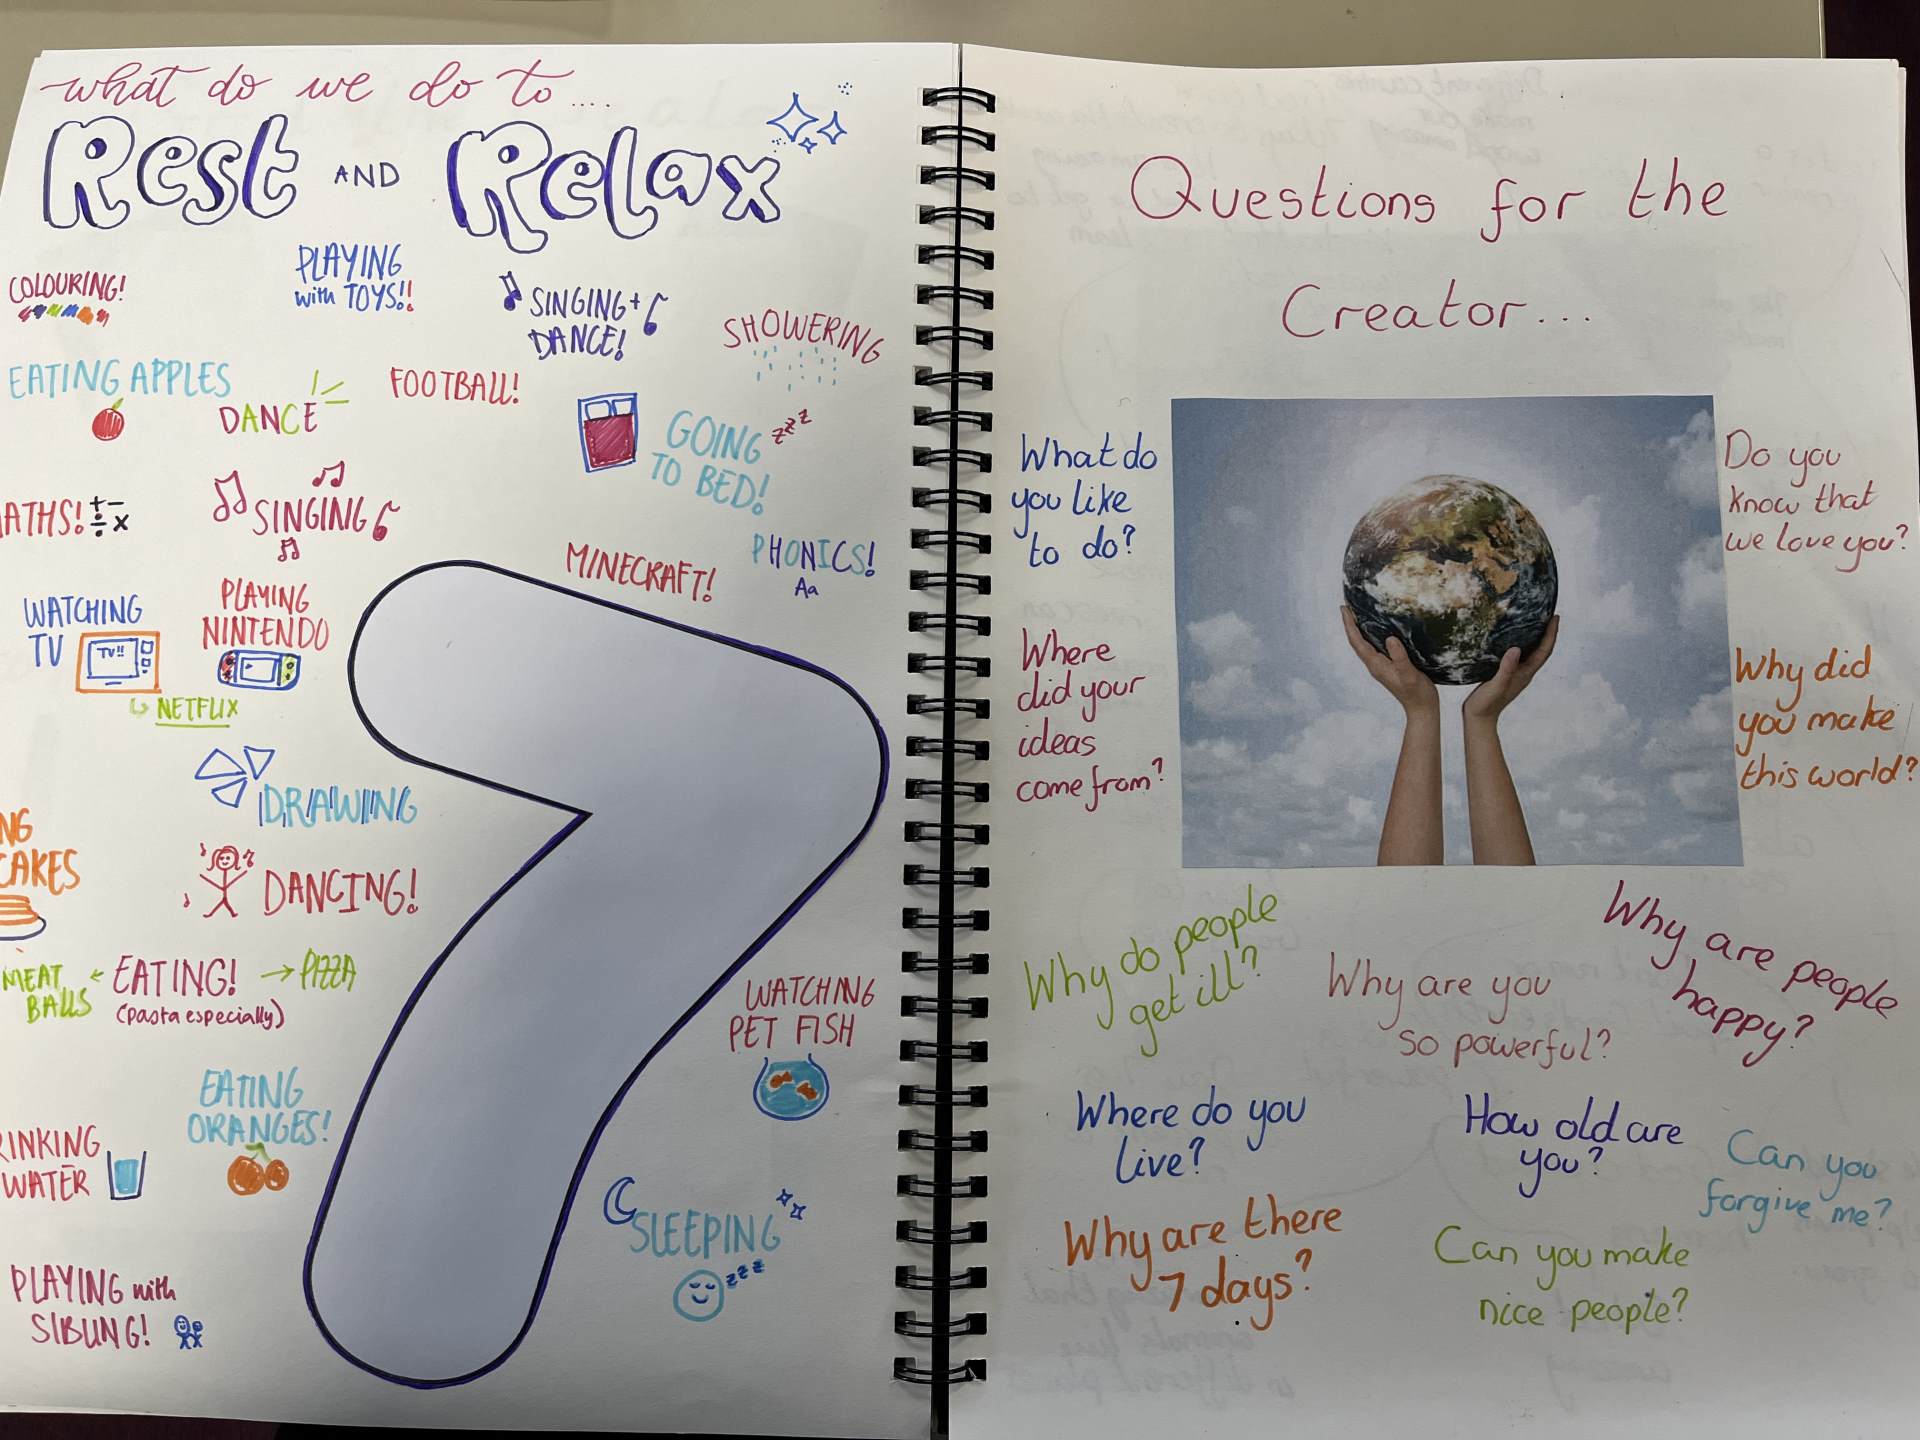 what do we do to....
Rest AND Relax
COLOURING!
PLAYING
with TOYS!!
SINGING +
DANCE!
SHOWERING
EATING APPLES
DANCE
FOOTBALL!
GOING
TO BED!
zzz
ATHS! + - ÷ x
SINGING
MINECRAFT!
PHONICS!
Aa
WATCHING
TV
TV!!
NETFLIX
PLAYING
NINTENDO
DRAWING
NG
CAKES
DANCING!
MEAT
BALLS
← EATING! → PIZZA
(pasta especially)
WATCHING
PET FISH
EATING
ORANGES!
RINKING
WATER
SLEEPING
zzz
PLAYING with
SIBLING!
7
Questions for the
Creator...
What do
you like
to do?
Do you
know that
we love you?
Where
did your
ideas
come from?
Why did
you make
this world?
Why do people
get ill?
Why are you
so powerful?
Why are people
happy?
Where do you
live?
How old are
you?
Can you
forgive me?
Why are there
7 days?
Can you make
nice people?